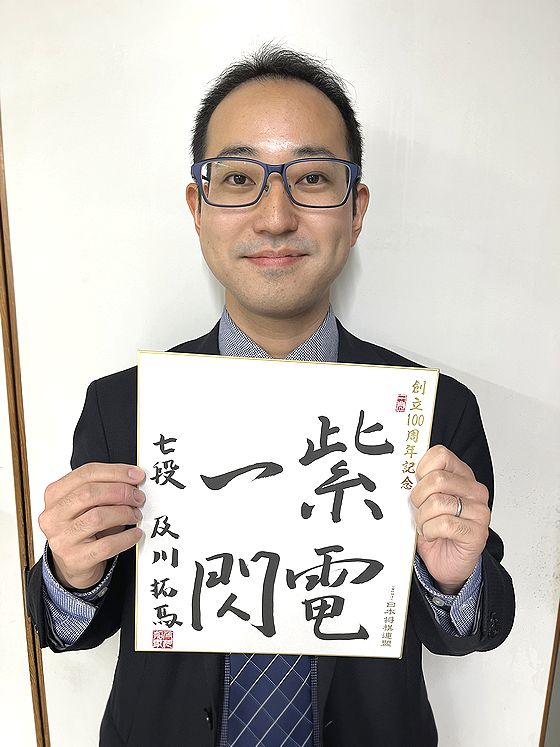 創立100周年記念
紫電
一閃
七段 及川拓馬
日本将棋連盟